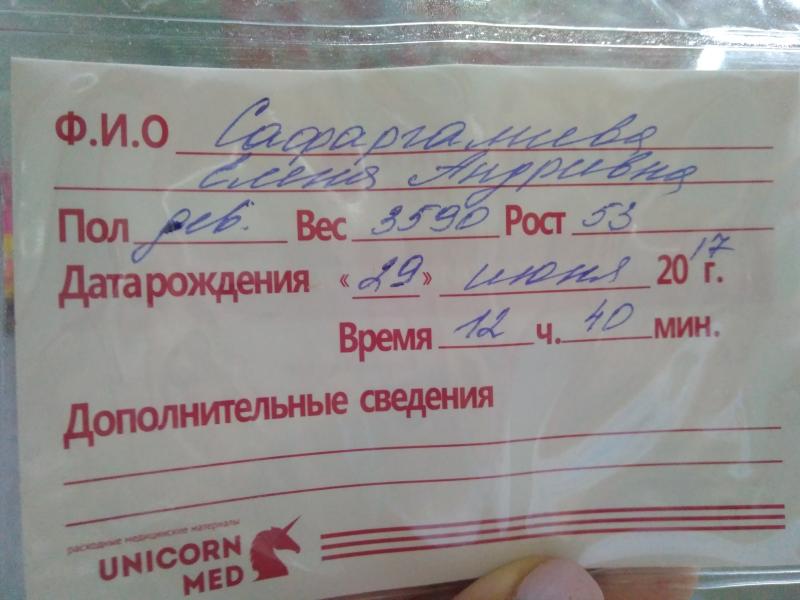 Ф.И.О Сафаргалиева
Елена Андривна
Пол дев. Вес 3590 Рост 53
Дата рождения «29» июня 2017 г.
Время 12 ч. 40 мин.
Дополнительные сведения
расходные медицинские материалы
UNICORN
MED